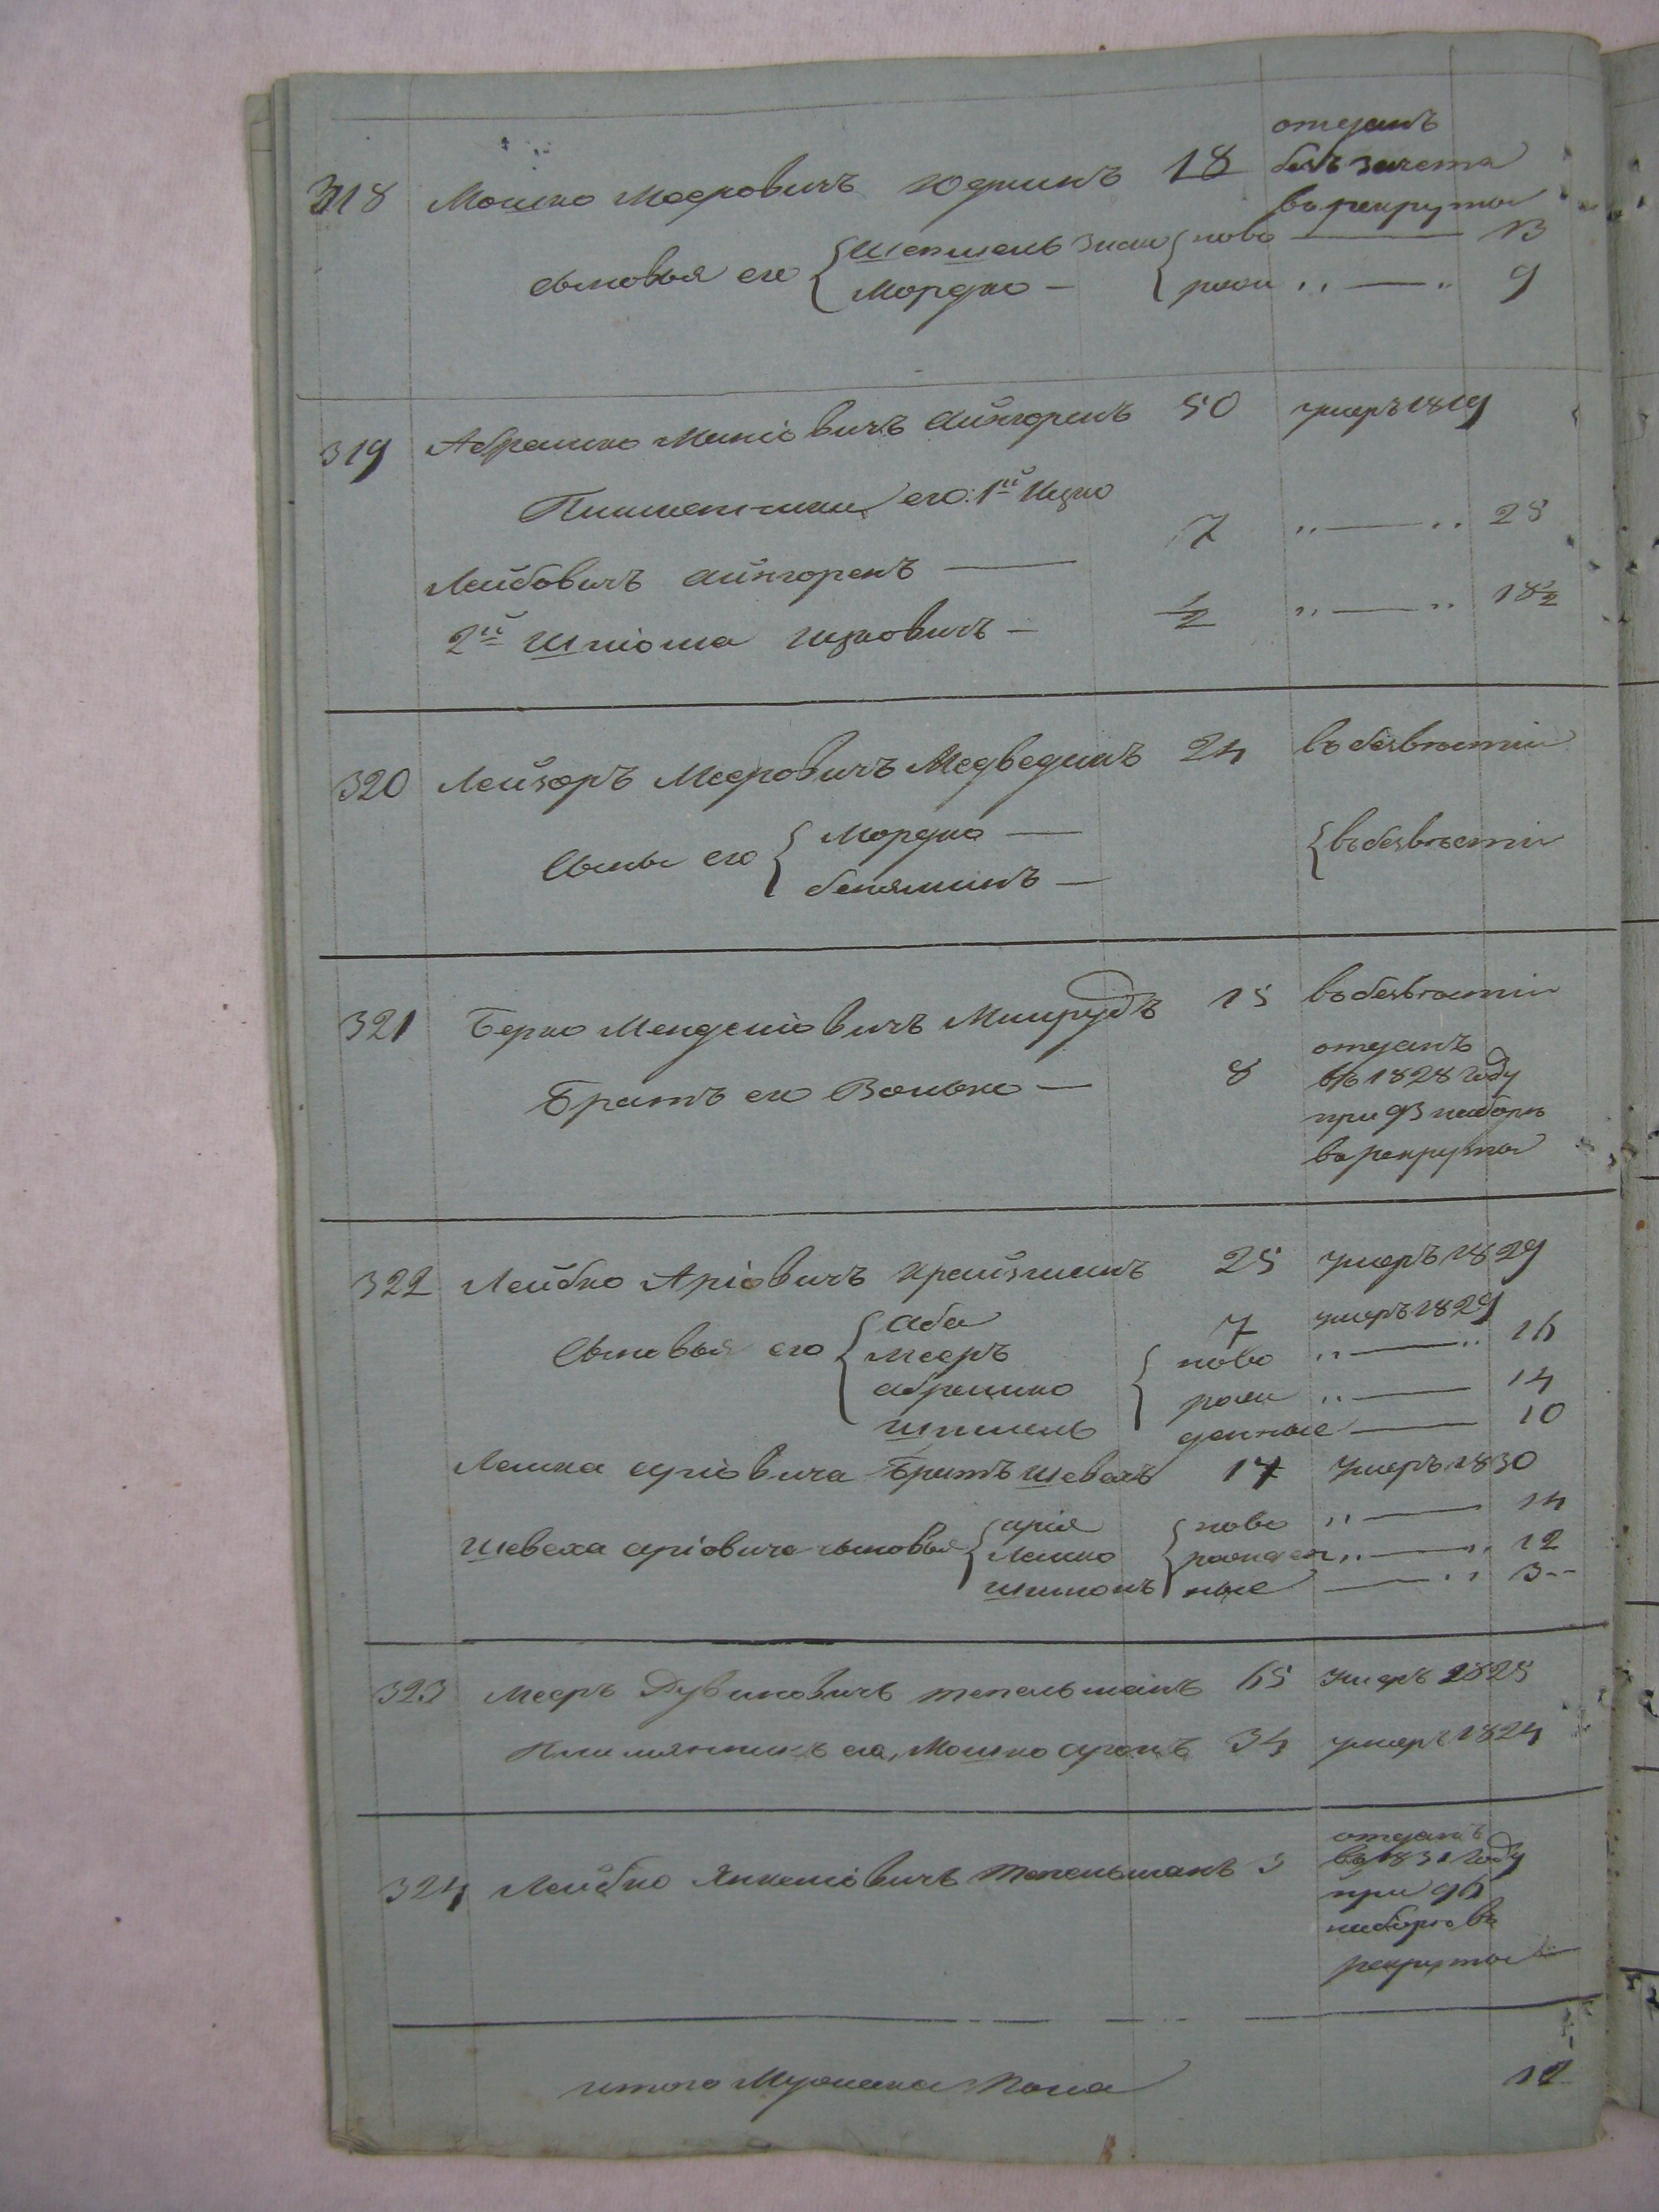 318 Мошко Мееровичъ Юдкинъ 18 отданъ
безъ зачета
въ рекруты
сыновья его { Шепшель Зиси { ново — 13
Мордко — рож „ — „ 9
319 Абрашко Маніовичъ Айнгоренъ 50 умеръ 1819
Племянники его: 1й Ицко
Лейбовичъ Айнгоренъ — 7 „ — „ 25
2й Шліома Ицковичъ — 1/2 „ — „ 18 1/2
320 Лейзоръ Мееровичъ Медведикъ 24 въ безвестіи
Сыны его { Мордко —
Беняминъ — { въ безвестіи
321 Берко Менделіовичъ 15 въ безвестіи
Братъ его Волько — 8 отданъ
въ 1828 году
при 93 наборе
въ рекруты
322 Лейбко Аріовичъ Крайзманъ 25 умеръ 1829
Сыновья его { Аба 7 умеръ 1829
Мееръ { ново „ — „ 16
Абрашко рож „ — 14
Шмиель денные — 10
Лейбка Аріовича Братъ Шевехъ 17 умеръ 1830
Шевеха Аріовича сыновья { Арія { ново „ — 14
Лейбко рожден „ — „ 12
Шимонъ ные — „ 3 --
323 Мееръ Дувиновичъ Тепельманъ 65 умеръ 1825
Племянникъ его, Мошко Аронъ 34 умеръ 1824
324 Лейбко Янкеліовичъ Тепельманъ 3 отданъ
въ 1831 году
при 96
наборе въ
рекруты
итого Мужеска Пола 12